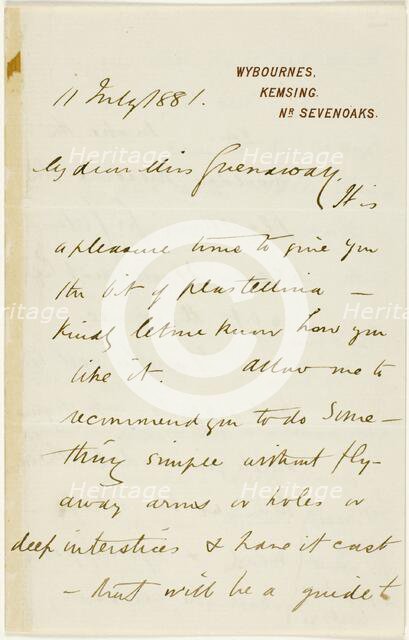 WYBOURNES,
KEMSING.
NR SEVENOAKS.
11 July 1881.
My dear Miss Greenaway
It is
a pleasure to me to give you
the bit of plastellina —
kindly let me know how you
like it. Allow me to
recommend you to do Some-
thing simple without fly-
away arms or holes or
deep interstices & have it cast
— that will be a guide to